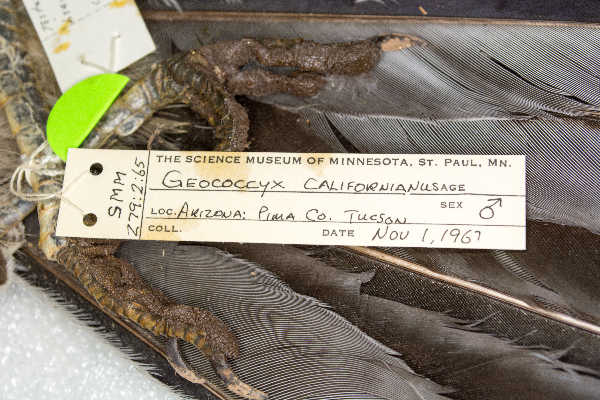 THE SCIENCE MUSEUM OF MINNESOTA, ST. PAUL, MN.
GEOCOCCYX CALIFORNIANUS AGE
SEX ♂
LOC. ARIZONA: PIMA CO. TUCSON
COLL. DATE NOV 1, 1967
SMM
Z79:2:65